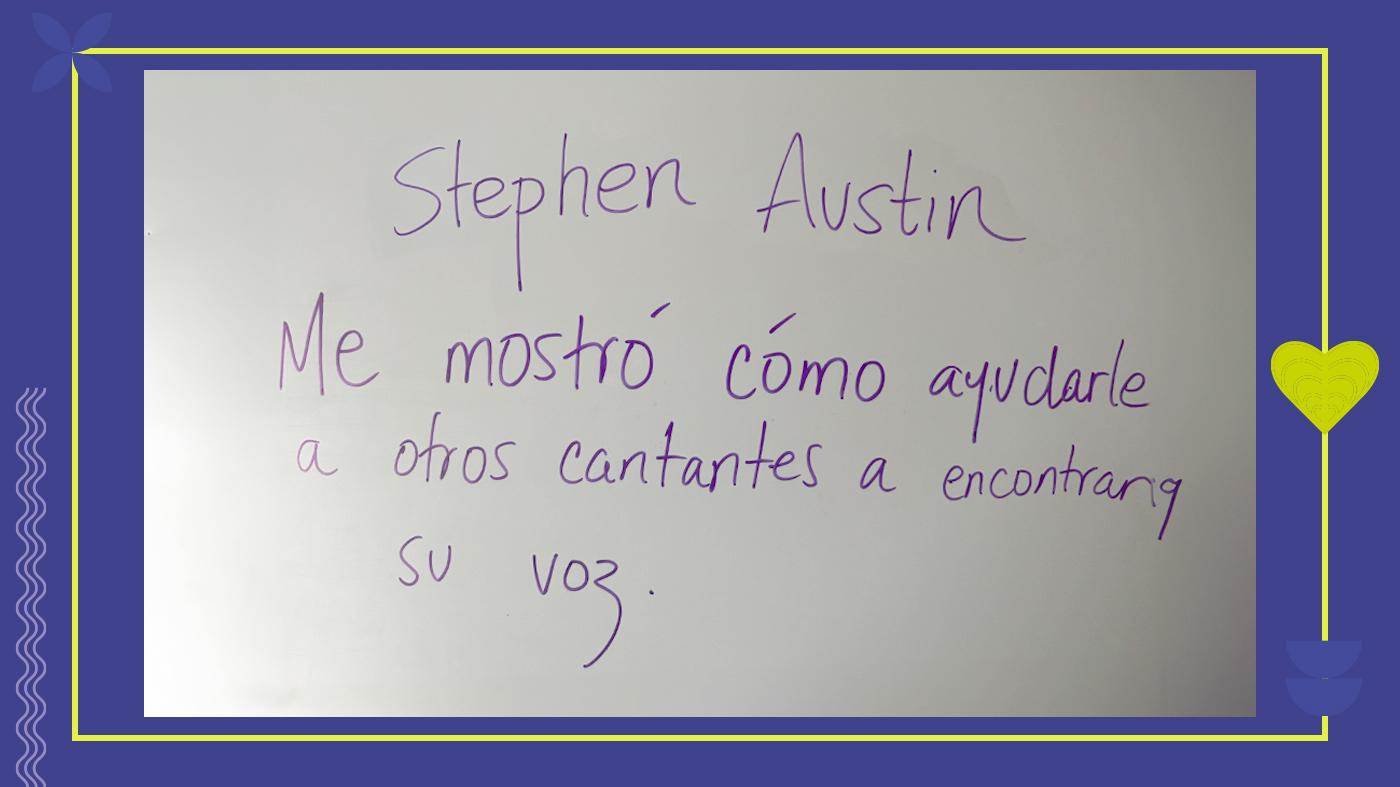 Stephen Austin
Me mostró cómo ayudarle
a otros cantantes a encontrar
su voz.